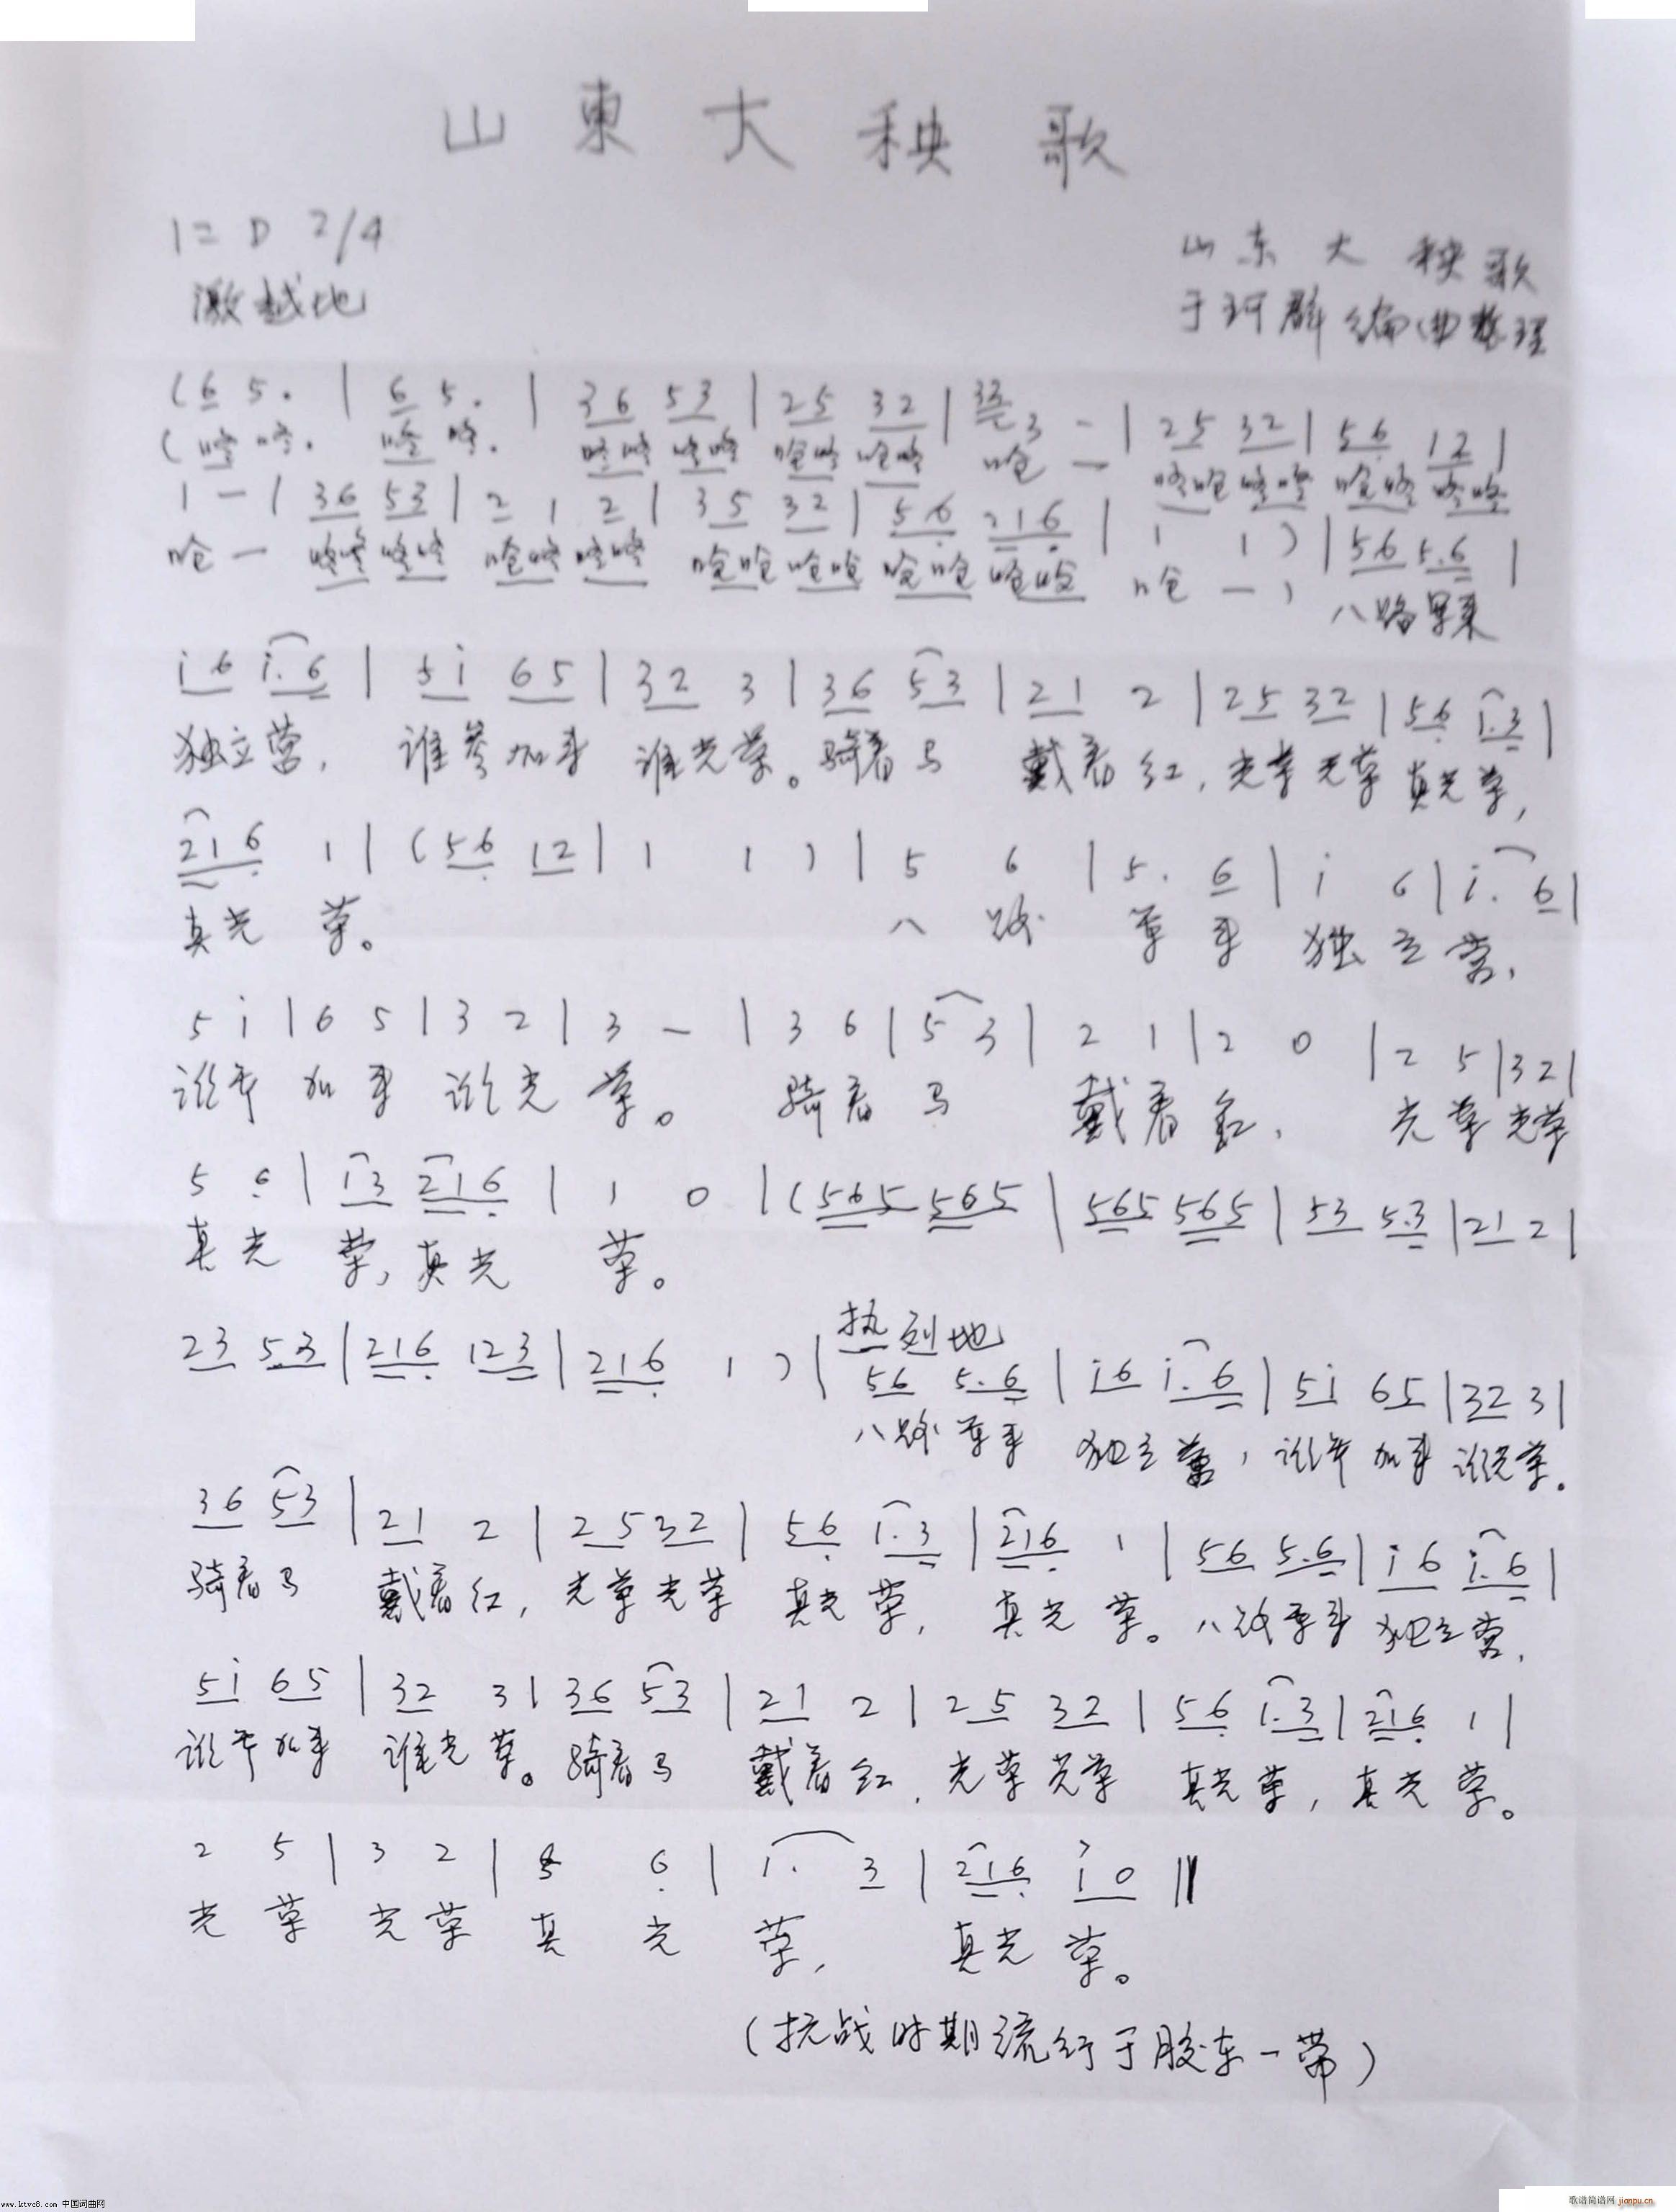 山東大秧歌
1=D 2/4
山东大秧歌
激越地
于珂群编曲整理
(6 5. | 6 5. | 36 53 | 25 32 | 332 3 - | 25 32 | 56 12 |
1 - | 36 53 | 2 1 2 | 35 32 | 56 216 | 1 1 ) | 56 5.6 |
八路军来
i6 i.6 | 5i 65 | 32 3 | 36 53 | 21 2 | 25 32 | 56 1.3 |
独立营, 谁参加来 谁光荣。骑着马 戴着红, 光荣光荣 真光荣,
216 1 | (56 12 | 1 1 ) | 5 6 | 5. 6 | i 6 | i. 6 |
真光 荣。 八 路 军 来 独 立 营,
5 i | 6 5 | 3 2 | 3 - | 3 6 | 5 3 | 2 1 | 2 0 | 2 5 | 3 2 |
谁参 加来 谁光 荣。 骑着 马 戴着红, 光荣光荣
5 6 | 1 3 216 | 1 0 | (565 565 | 565 565 | 53 5.3 | 21 2 |
真光 荣, 真光 荣。
热烈地
23 5.3 | 216 123 | 216 1 ) | 56 5.6 | i6 i.6 | 5i 65 | 32 3 |
八路军来 独立营, 谁参加来 谁光荣。
36 53 | 21 2 | 25 32 | 56 1.3 | 216 1 | 56 5.6 | i6 i.6 |
骑着马 戴着红, 光荣光荣 真光荣, 真光荣。八路军来 独立营,
5i 65 | 32 3 | 36 53 | 21 2 | 25 32 | 56 1.3 | 216 1 |
谁参加来 谁光荣。骑着马 戴着红, 光荣光荣 真光荣, 真光荣。
2 5 | 3 2 | 5 6 | 1. 3 | 216 i 0 ‖
光荣 光荣 真光 荣, 真光荣。
(抗战时期流行于胶东一带)
www.ktvc8.com 中国词曲网
歌谱简谱网 jianpu.cn